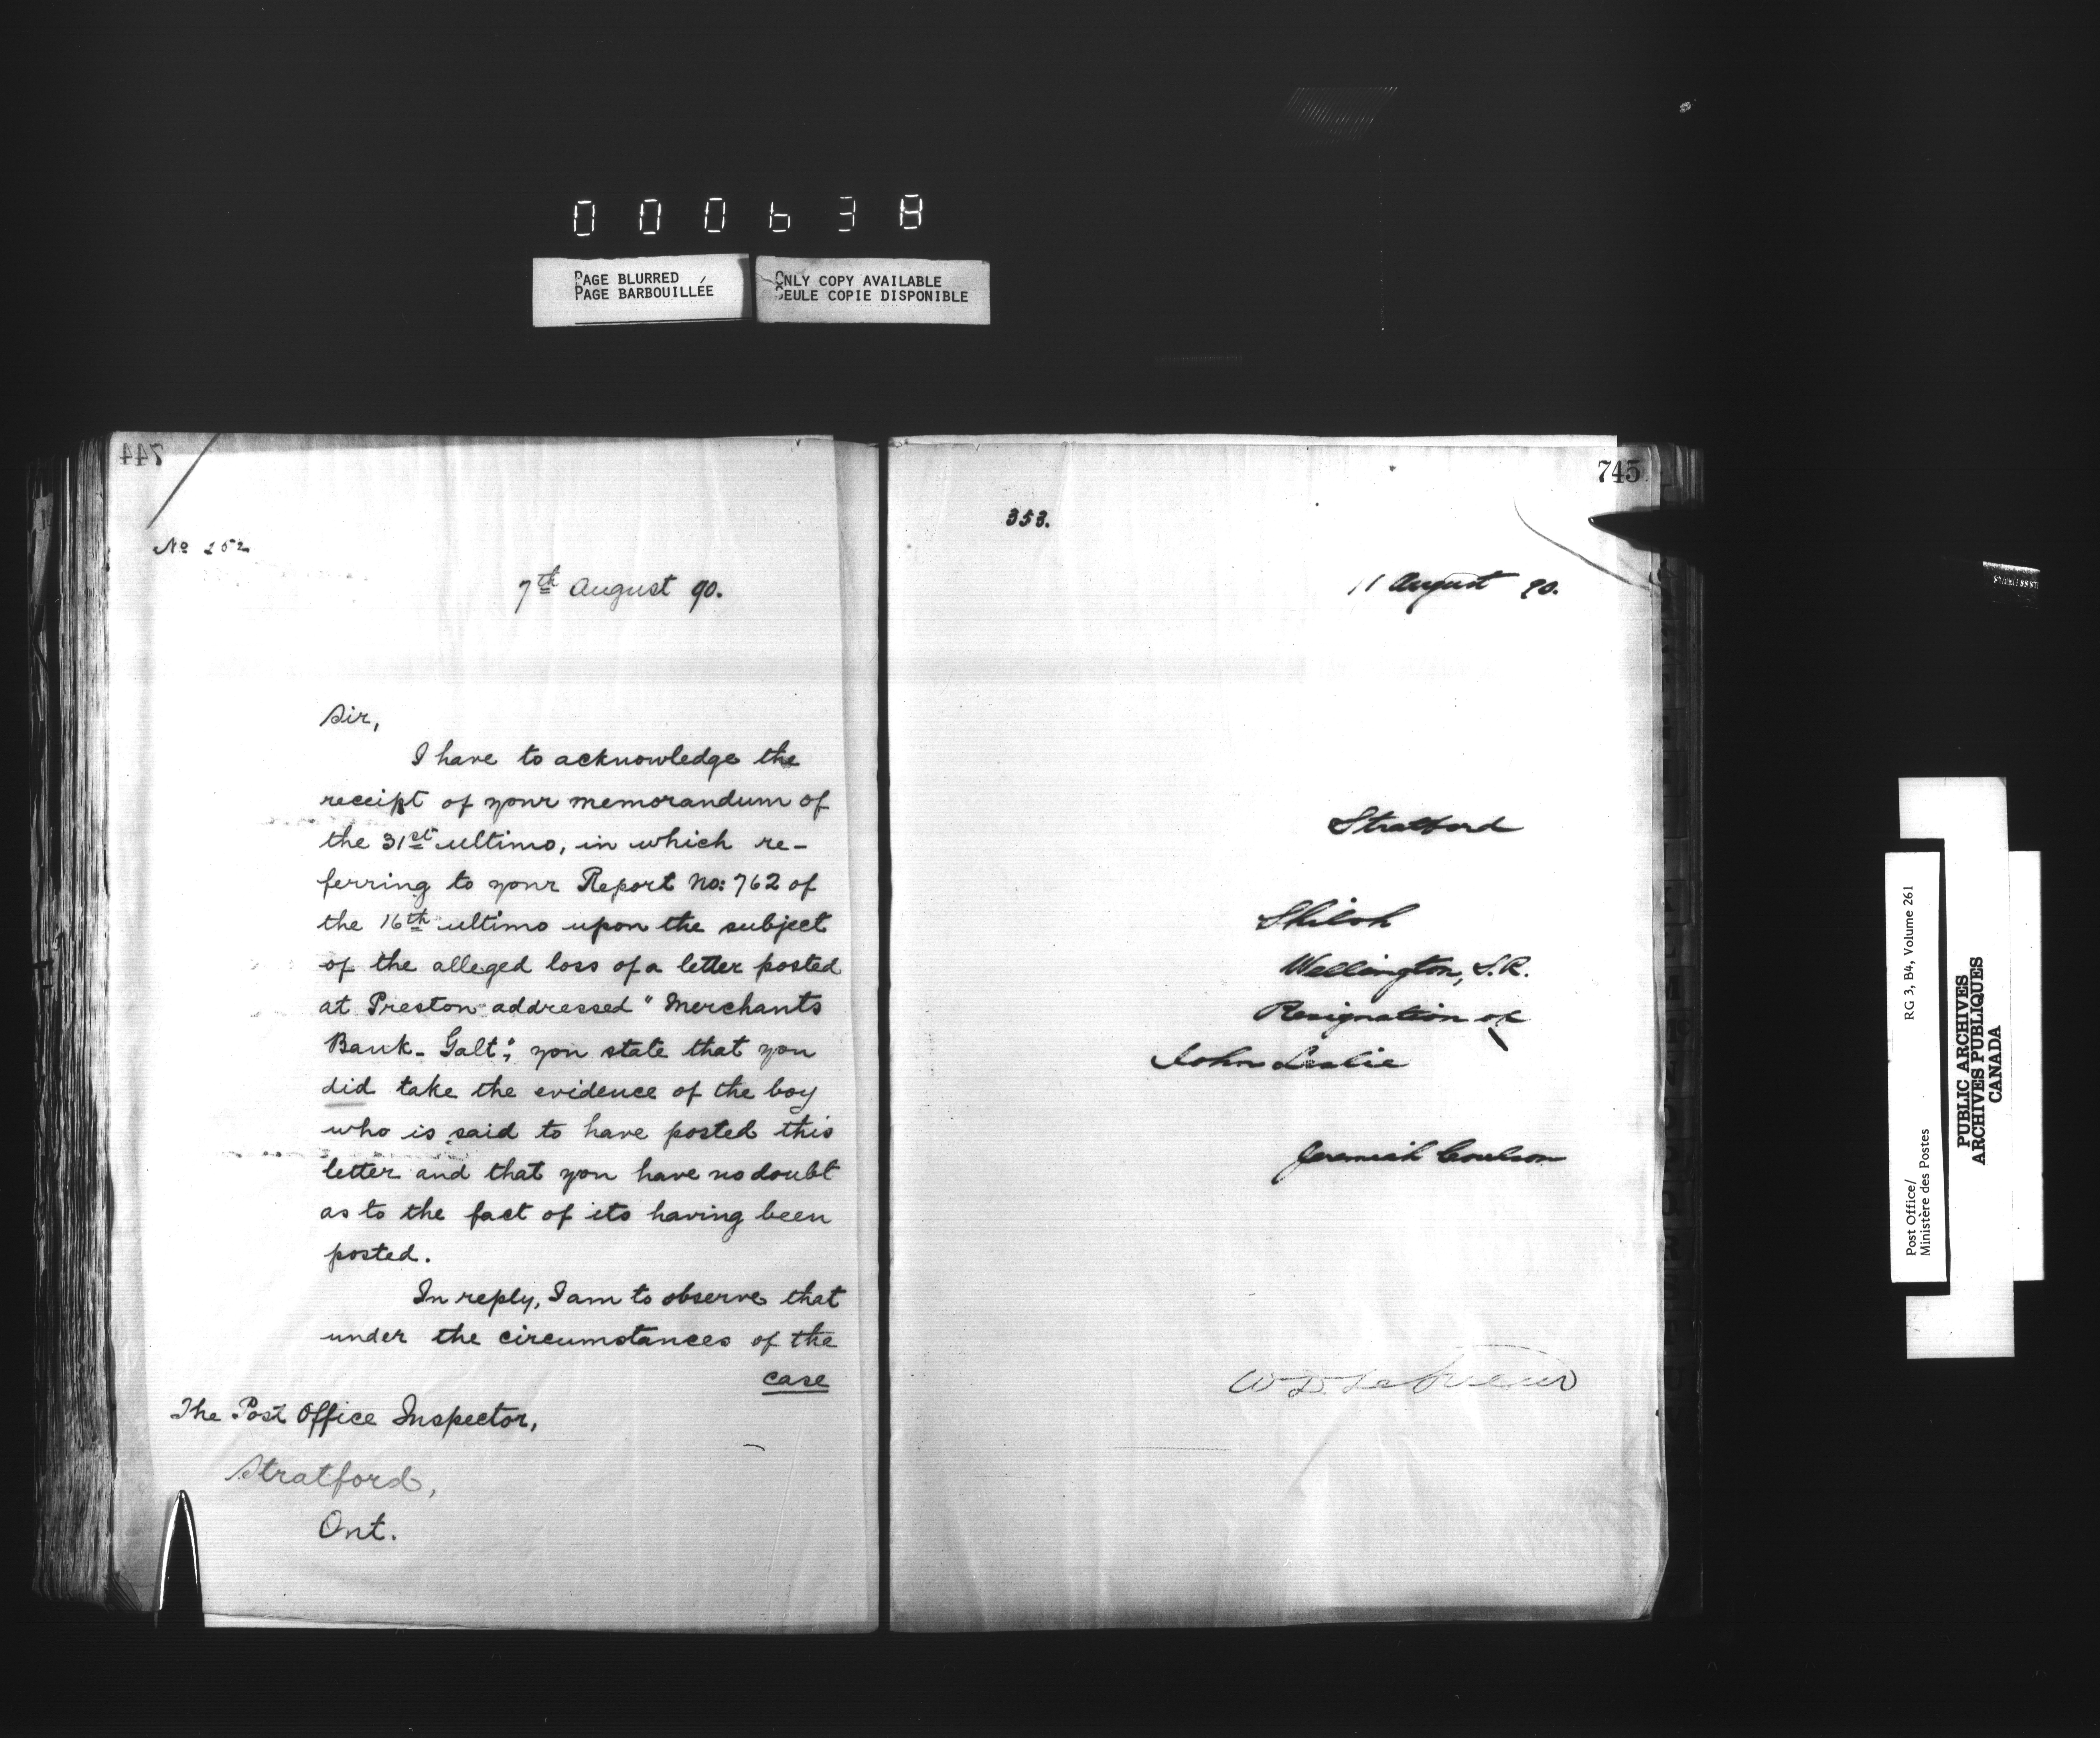 000638
PAGE BLURRED
PAGE BARBOUILLÉE
ONLY COPY AVAILABLE
SEULE COPIE DISPONIBLE
744
No 252
7th August 90.
Sir,
I have to acknowledge the
receipt of your memorandum of
the 31st ultimo, in which re-
ferring to your Report No: 762 of
the 16th ultimo upon the subject
of the alleged loss of a letter posted
at Preston addressed "Merchants
Bank - Galt", you state that you
did take the evidence of the boy
who is said to have posted this
letter and that you have no doubt
as to the fact of its having been
posted.
In reply, I am to observe that
under the circumstances of the
case
The Post Office Inspector,
Stratford,
Ont.
745
353.
11 August 90.
Stratford
Shiloh
Wellington, S.R.
Resignation of
John Leslie
Jeremiah Coulson
W D LeSueur
Post Office/
Ministère des Postes
RG 3, B4, Volume 261
PUBLIC ARCHIVES
ARCHIVES PUBLIQUES
CANADA